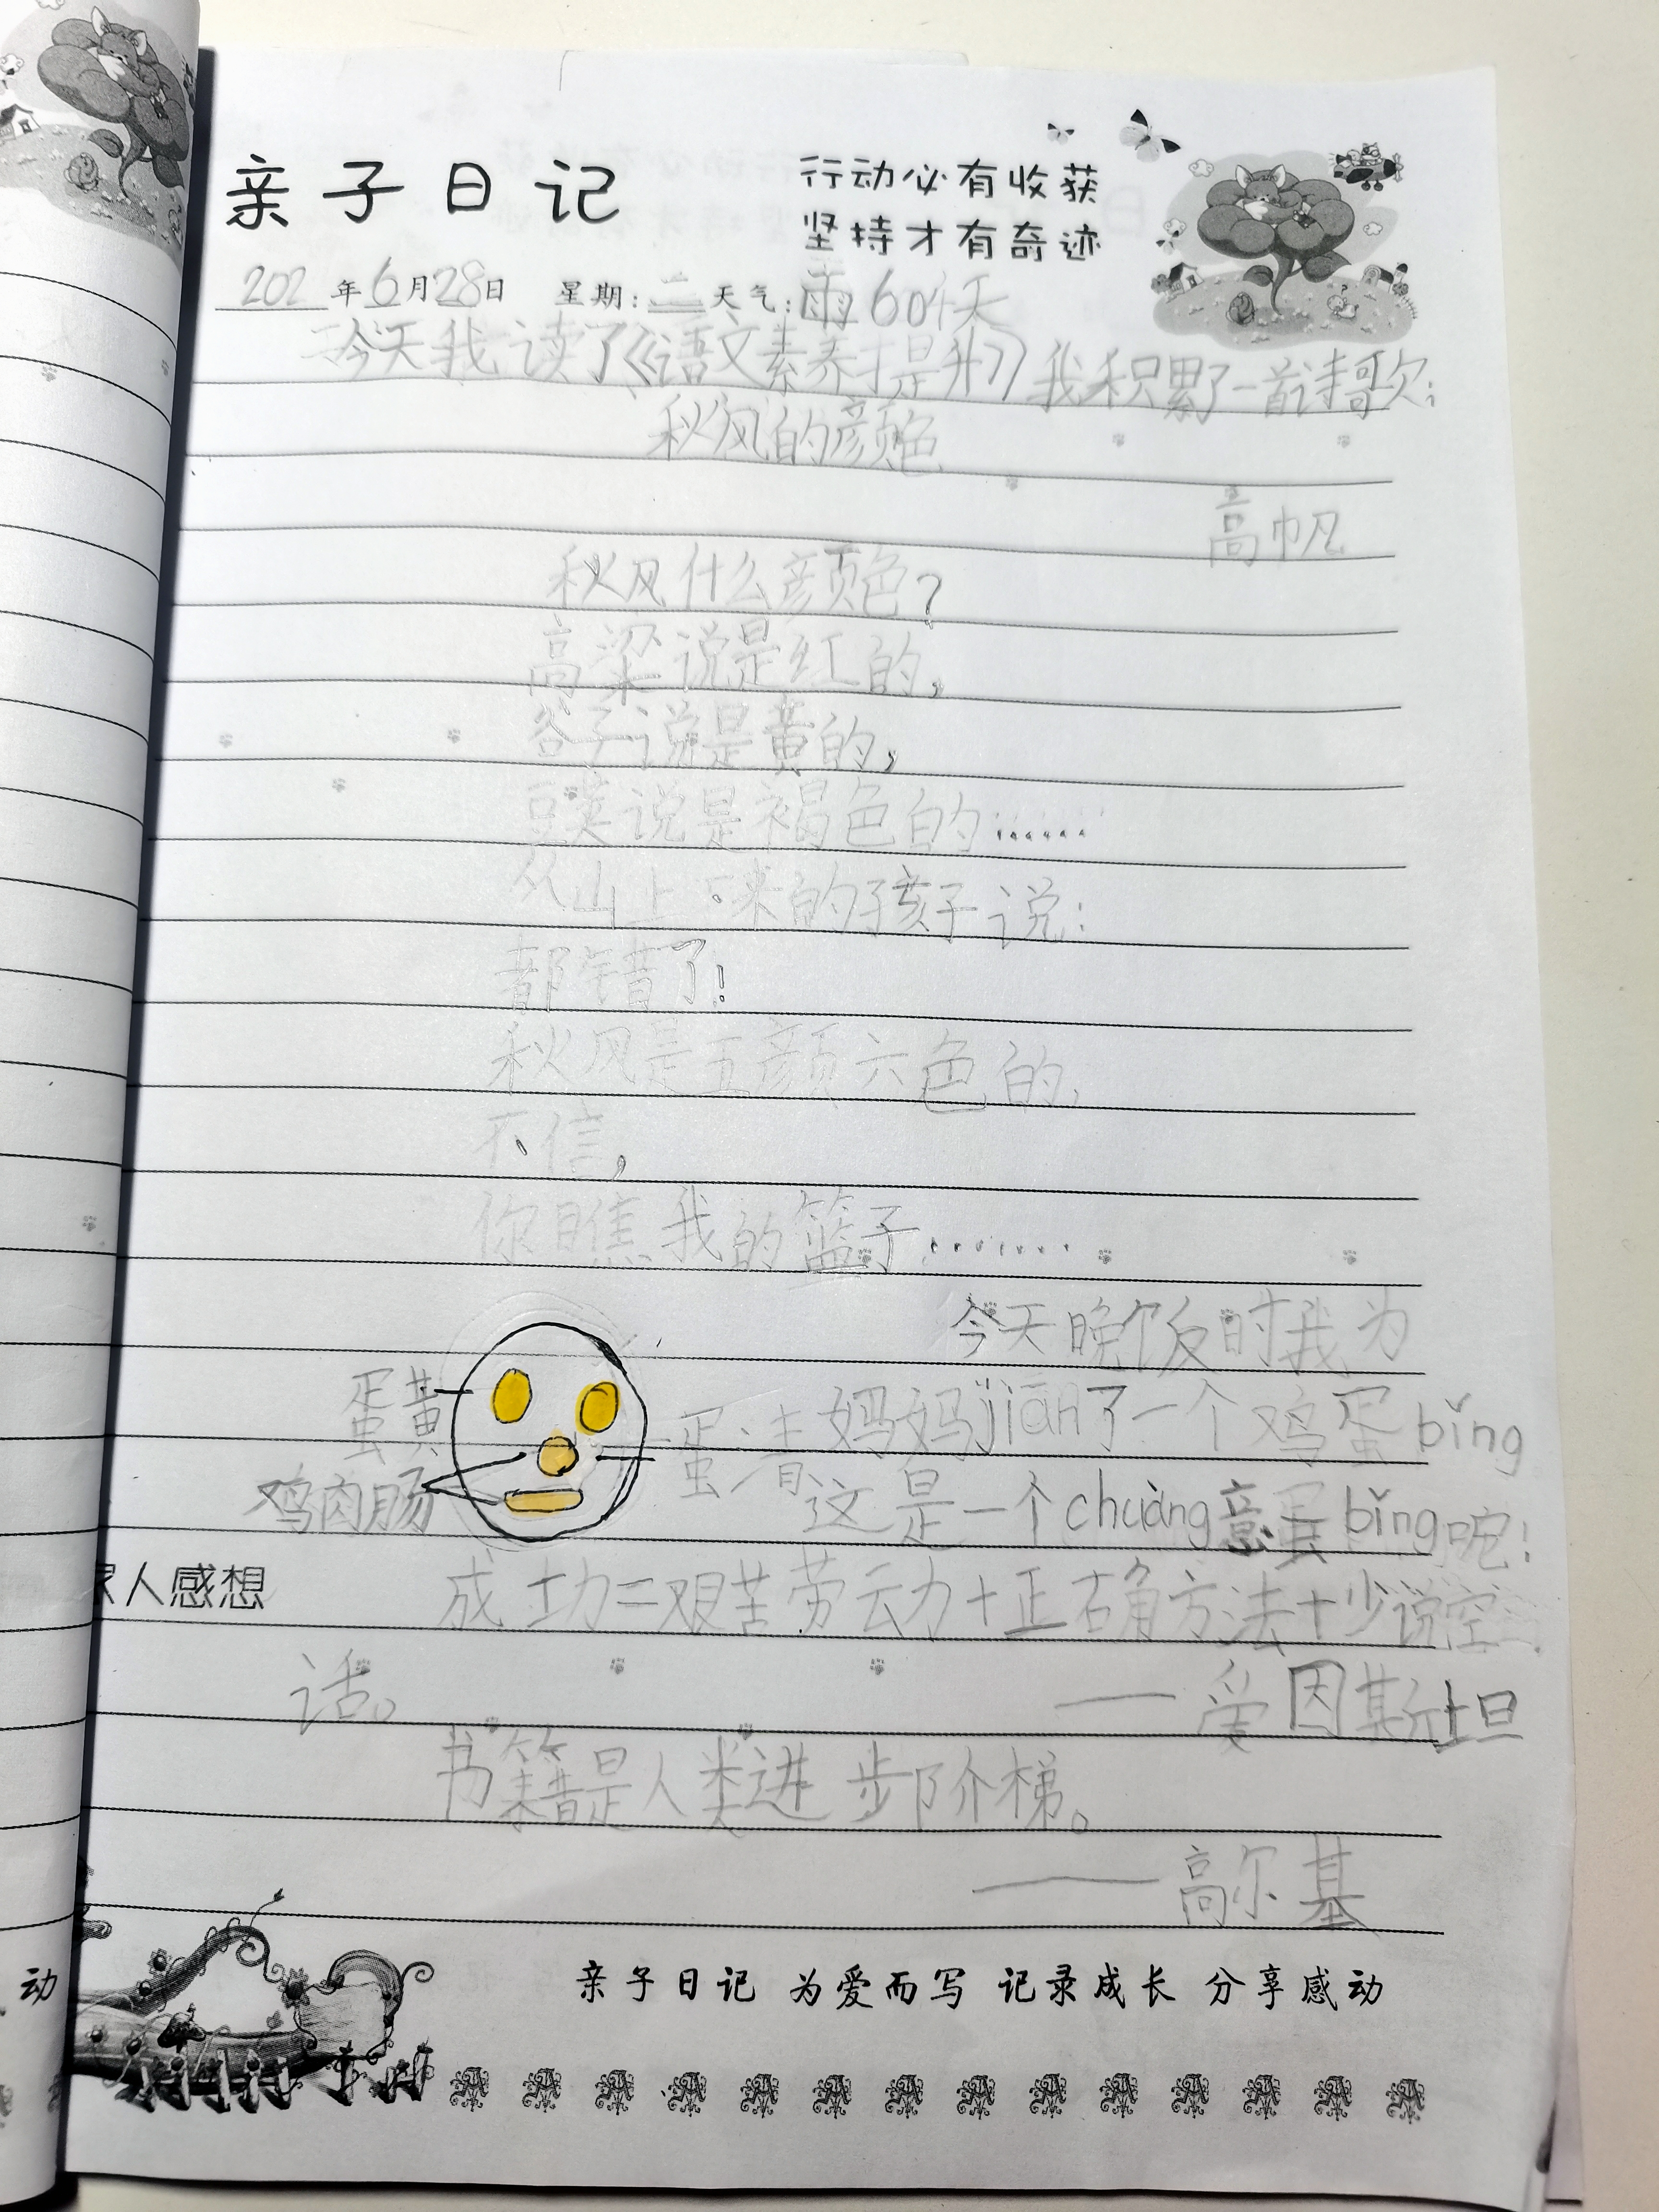 亲子日记
行动必有收获
坚持才有奇迹
202 年6月28日 星期:二 天气:雨 604天
今天我读了《语文素养才是升》我积累了一首诗歌:
秋风的颜色
高帆
秋风什么颜色?
高粱说是红的,
谷子说是黄的,
豆荚说是褐色的……
从山上下来的孩子说:
都错了!
秋风是五颜六色的,
不信,
你瞧我的篮子……
今天晚饭时我为
妈妈jiān了一个鸡蛋bǐng
这是一个chuàng意蛋bǐng呢!
蛋黄
蛋清
鸡肉肠
家人感想
成功=艰苦劳动+正确方法+少说空
话。 ——爱因斯坦
书籍是人类进步阶梯。
——高尔基
动
亲子日记 为爱而写 记录成长 分享感动